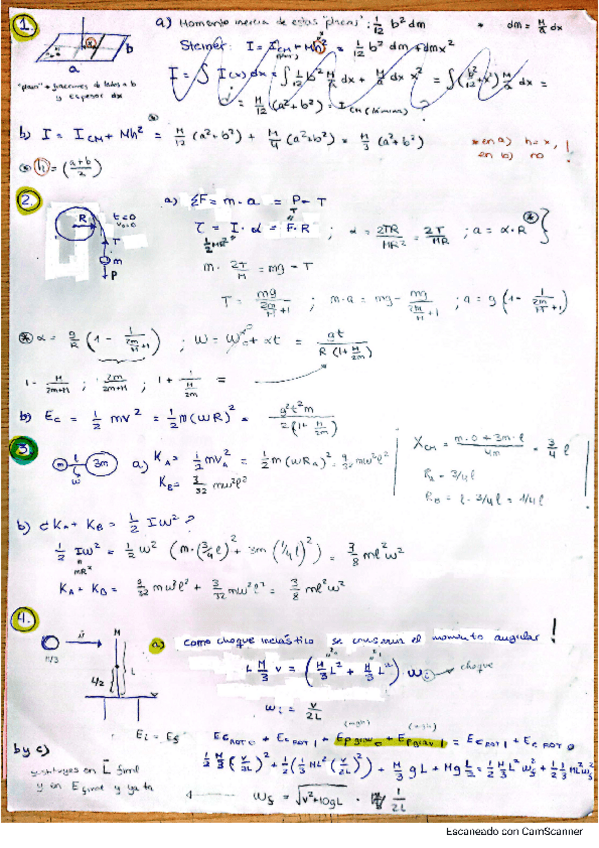 1.
a) Momento inercia de estas "placas": 1/12 b² dm * dm = M/a dx
Steiner: I = I_CM + Mh² = 1/12 b² dm + dm x²
a b
"placas" = fracciones de lados a b
y espesor dx
I = ∫ I(x) dx = ∫ 1/12 b² M/a dx + M/a dx x² = ∫ (b²/12 + x²) M/a dx =
= M/12 (a²+b²) = I_CM (lámina)
b) I = I_CM + Mh² = M/12 (a²+b²) + M/4 (a²+b²) = M/3 (a²+b²)
* en a) h = x, !
en b) no
h = (a+b/2)
2.
R t=0 v₀=0
T
m
P
a) ΣF = m·a = P - T
τ = I · α = F·R ; α = 2TR/MR² = 2T/MR ; a = α·R
1/2 MR²
m · 2T/M = mg - T
T = mg / (2m/M + 1) ; m·a = mg - mg / (2m/M + 1) ; a = g (1 - 1/(2m/M + 1))
α = g/R (1 - 1/(2m/M + 1)) ; ω = ω₀ + αt = gt / R(1 + M/2m)
1 - M/2m+M ; 2m/2m+M ; 1 + 1/(M/2m) =
b) Ec = 1/2 mv² = 1/2 m(ωR)² = g²t²m / 2(1 + M/2m)
3.
m l 3m
ω
a) K_A = 1/2 mv_A² = 1/2 m(ωR_A)² = 9/32 mω²l²
K_B = 3/32 mω²l²
X_CM = m·0 + 3m·l / 4m = 3/4 l
R_A = 3/4 l
R_B = l - 3/4 l = 1/4 l
b) ¿K_A + K_B = 1/2 Iω²?
1/2 Iω² = 1/2 ω² (m·(3/4 l)² + 3m (1/4 l)²) = 3/8 ml²ω²
MR²
K_A + K_B = 9/32 mω²l² + 3/32 mω²l² = 3/8 ml²ω²
4.
M/3 v M
L/2 L
a) como choque inelástico se conserva el momento angular!
L M/3 v = (M/3 L² + M/3 L²) · ω_i → choque
ω_i = v/2L
E_i = E_f
Ec ROT 0 + Ec ROT 1 + Ep grav 0 + Ep grav 1 = Ec ROT 1 + Ec ROT 0
b y c)
1/2 M/3 L² (v/2L)² + 1/2 (1/3 ML² (v/2L)²) + M/3 gL + Mg L/2 = 1/2 M/3 L² ω_f² + 1/2 1/3 ML² ω_f²
sustituyes en L final
y en E final y ya ta
ω_f = √v²+10gL · 1/2L
Escaneado con CamScanner